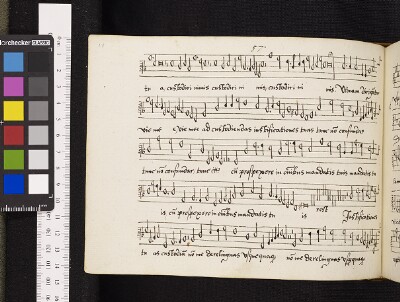 colorchecker CLASSIC
tu a custodiri nimis custodiri ni mis custodiri ni mis. Utinam dirigantur
vie mee vie mee ad custodiendas iustificationes tuas tunc no confundar
tunc no confundar, tunc cu prospexero in oibus mandatis tuis mandatis tu
is cu prospexero in oibus mandatis tu is rest Justificationes
tu as custodia no me derelinquas usquequaq no me derelinquas usquequaq